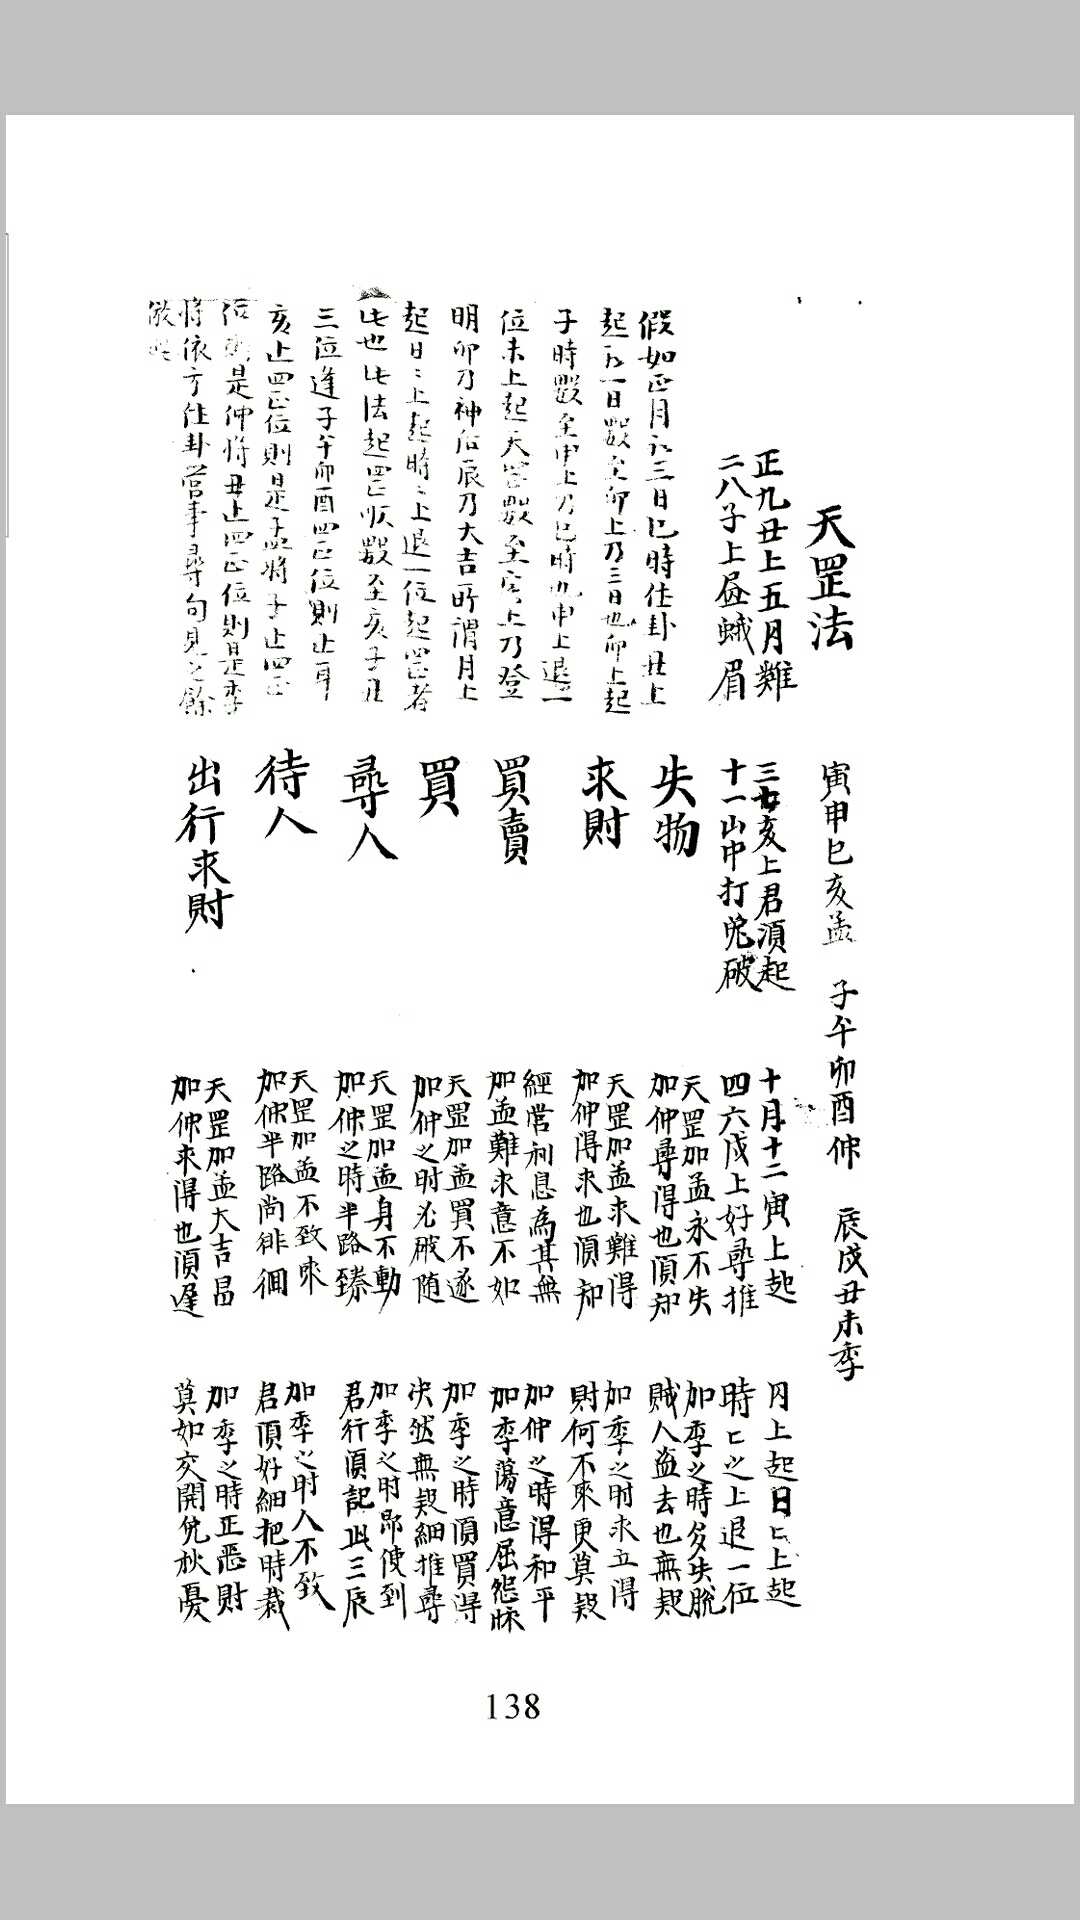 天罡法
寅申巳亥孟　子午卯酉仲　辰戌丑未季
正九丑上五月難
三七亥上君須起
十月十二寅上起
月上起日匕上起
二八子上昼蛾眉
十一山中打兔破
四六戌上好尋推
時匕之上退一位
失物
天罡加孟永不失
加仲尋得也須知
加季之時多失脫
賊人盗去也無疑
求財
天罡加孟求難得
加仲得求也須知
加季之时求立得
財何不來更莫疑
買賣
經营利息為其無
加孟難求意不如
加仲之時得和平
加季蕩意屈
買
天罡加孟買不遂
加仲之时必破随
加季之時須買得
决然無疑細推尋
尋人
天罡加孟身不動
加仲之時半路臻
加季之时即使到
君行須記此三辰
待人
天罡加孟不致來
加仲半路尚徘徊
加季之时人不致
君須好細把時裁
出行求財
天罡加孟大吉昌
加仲求得也須遲
加季之時正惡財
莫如交開免秋憂
假如正月初三日巳時住卦丑上
起初一日數至卯上乃三日也卯上起
子時數至申上乃巳時也申上退一
位未上起天罡數至寅上乃登
明卯乃神后辰乃大吉所謂月上
起日〻上起時〻上退一位起罡者
此也此法起罡順數至亥子丑
三位逢子午卯酉四正位則止耳
亥止四正位則是孟將子止四正
位則是仲將丑止四正位則是季
將依方住卦當事尋句見之餘
倣此
138